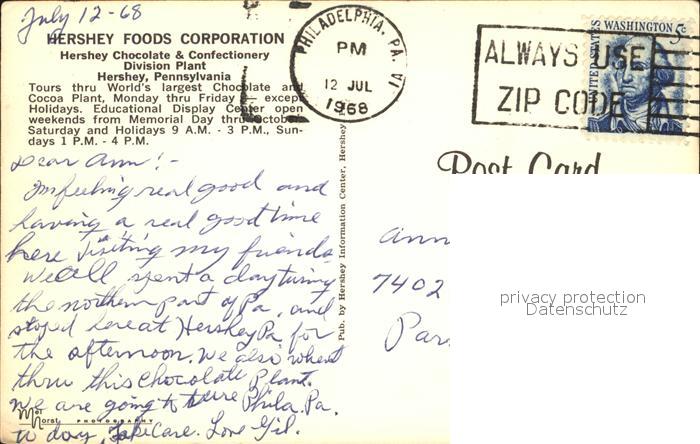 July 12-68
HERSHEY FOODS CORPORATION
Hershey Chocolate & Confectionery
Division Plant
Hershey, Pennsylvania
Tours thru World's largest Chocolate and
Cocoa Plant, Monday thru Friday — except
Holidays. Educational Display Center open
weekends from Memorial Day thru October.
Saturday and Holidays 9 A.M. - 3 P.M., Sun-
days 1 P.M. - 4 P.M.
Dear Ann!-
Im feeling real good and
having a real good time
here visiting my friends
We all spent a day turing
the northern part of Pa. and
stoped here at Hershey Pa for
the afternoon. We also whent
thru this Chocolate Plant.
We are going to ture Phila. Pa.
to day. Take Care. Love Gil.
PHOTOGRAPHY
Pub. by Hershey Information Center, Hershey
PHILADELPHIA, PA.
PM
12 JUL
1968
ALWAYS USE
ZIP CODE
WASHINGTON 5c
UNITED STATES
Post Card
Ann
7402
Par
privacy protection
Datenschutz